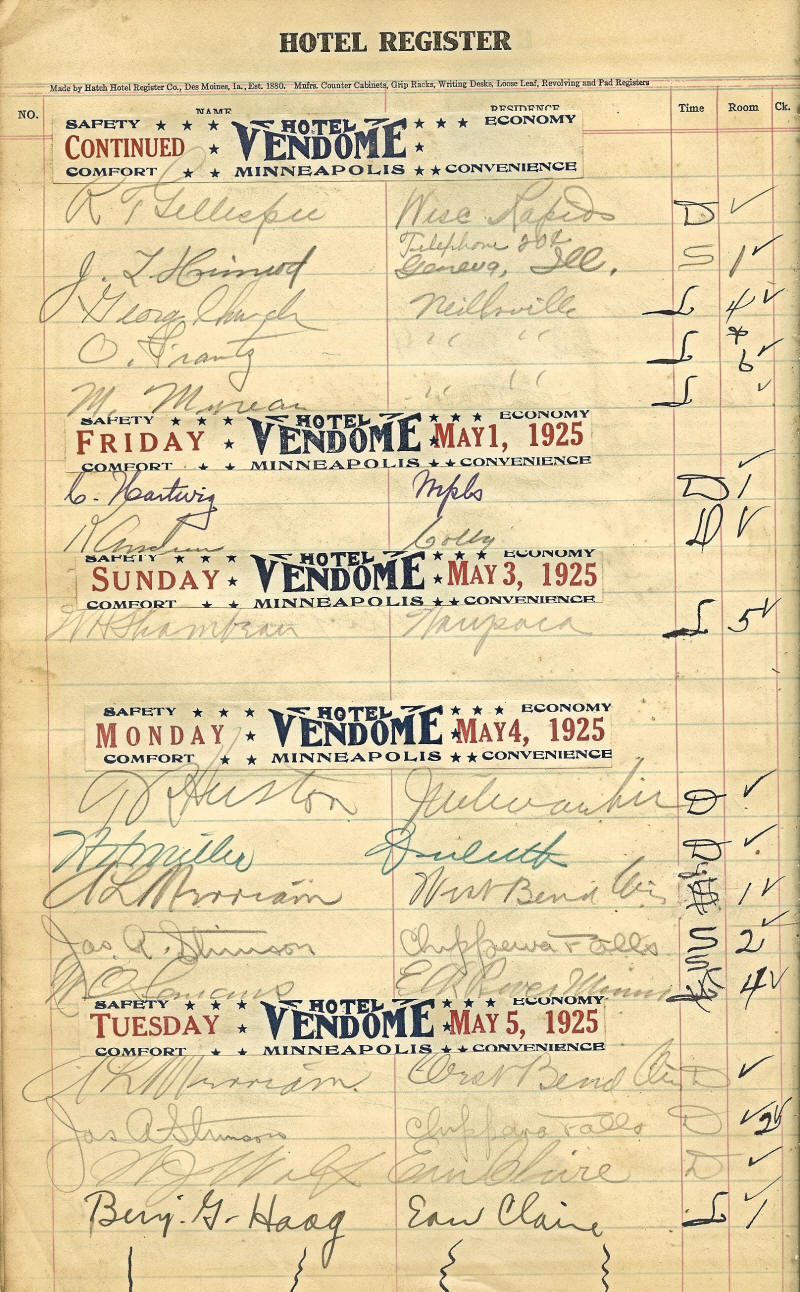 HOTEL REGISTER
Made by Hatch Hotel Register Co., Des Moines, Ia., Est. 1880. Mnfrs. Counter Cabinets, Grip Racks, Writing Desks, Loose Leaf, Revolving and Pad Registers
NO. NAME RESIDENCE Time Room Ck.
SAFETY ★ ★ ★ HOTEL ★ ★ ★ ECONOMY
CONTINUED ★ VENDOME ★
COMFORT ★ ★ MINNEAPOLIS ★ ★ CONVENIENCE
R T Gillespie Wisc Rapids D ✓
Telephone 202
J. L Himrod Geneva, Ill. S 1 ✓
George Neillsville L 4 ✓
O. Frantz " " L 6 ✓
M. " " L ✓
SAFETY ★ ★ ★ HOTEL ★ ★ ★ ECONOMY
FRIDAY ★ VENDOME ★ MAY 1, 1925
COMFORT ★ ★ MINNEAPOLIS ★ ★ CONVENIENCE
C. Hartwig Mpls D 1 ✓
Colby D ✓
SAFETY ★ ★ ★ HOTEL ★ ★ ★ ECONOMY
SUNDAY ★ VENDOME ★ MAY 3, 1925
COMFORT ★ ★ MINNEAPOLIS ★ ★ CONVENIENCE
W H Shambeau Waupaca L 5 ✓
SAFETY ★ ★ ★ HOTEL ★ ★ ★ ECONOMY
MONDAY ★ VENDOME ★ MAY 4, 1925
COMFORT ★ ★ MINNEAPOLIS ★ ★ CONVENIENCE
Huston Milwaukee D ✓
Miller Duluth D ✓
A L Merriam West Bend Wis 1 ✓
Jas. A. Stimson Chippewa Falls S 2 ✓
W. O. Elk River Minn 4 ✓
SAFETY ★ ★ ★ HOTEL ★ ★ ★ ECONOMY
TUESDAY ★ VENDOME ★ MAY 5, 1925
COMFORT ★ ★ MINNEAPOLIS ★ ★ CONVENIENCE
A L Merriam. West Bend Wis D ✓
Jas A Stimson Chippewa Falls D ✓ 2 ✓
W J Wolf Eau Claire D ✓
Benj. G. Haag Eau Claire L 1 ✓